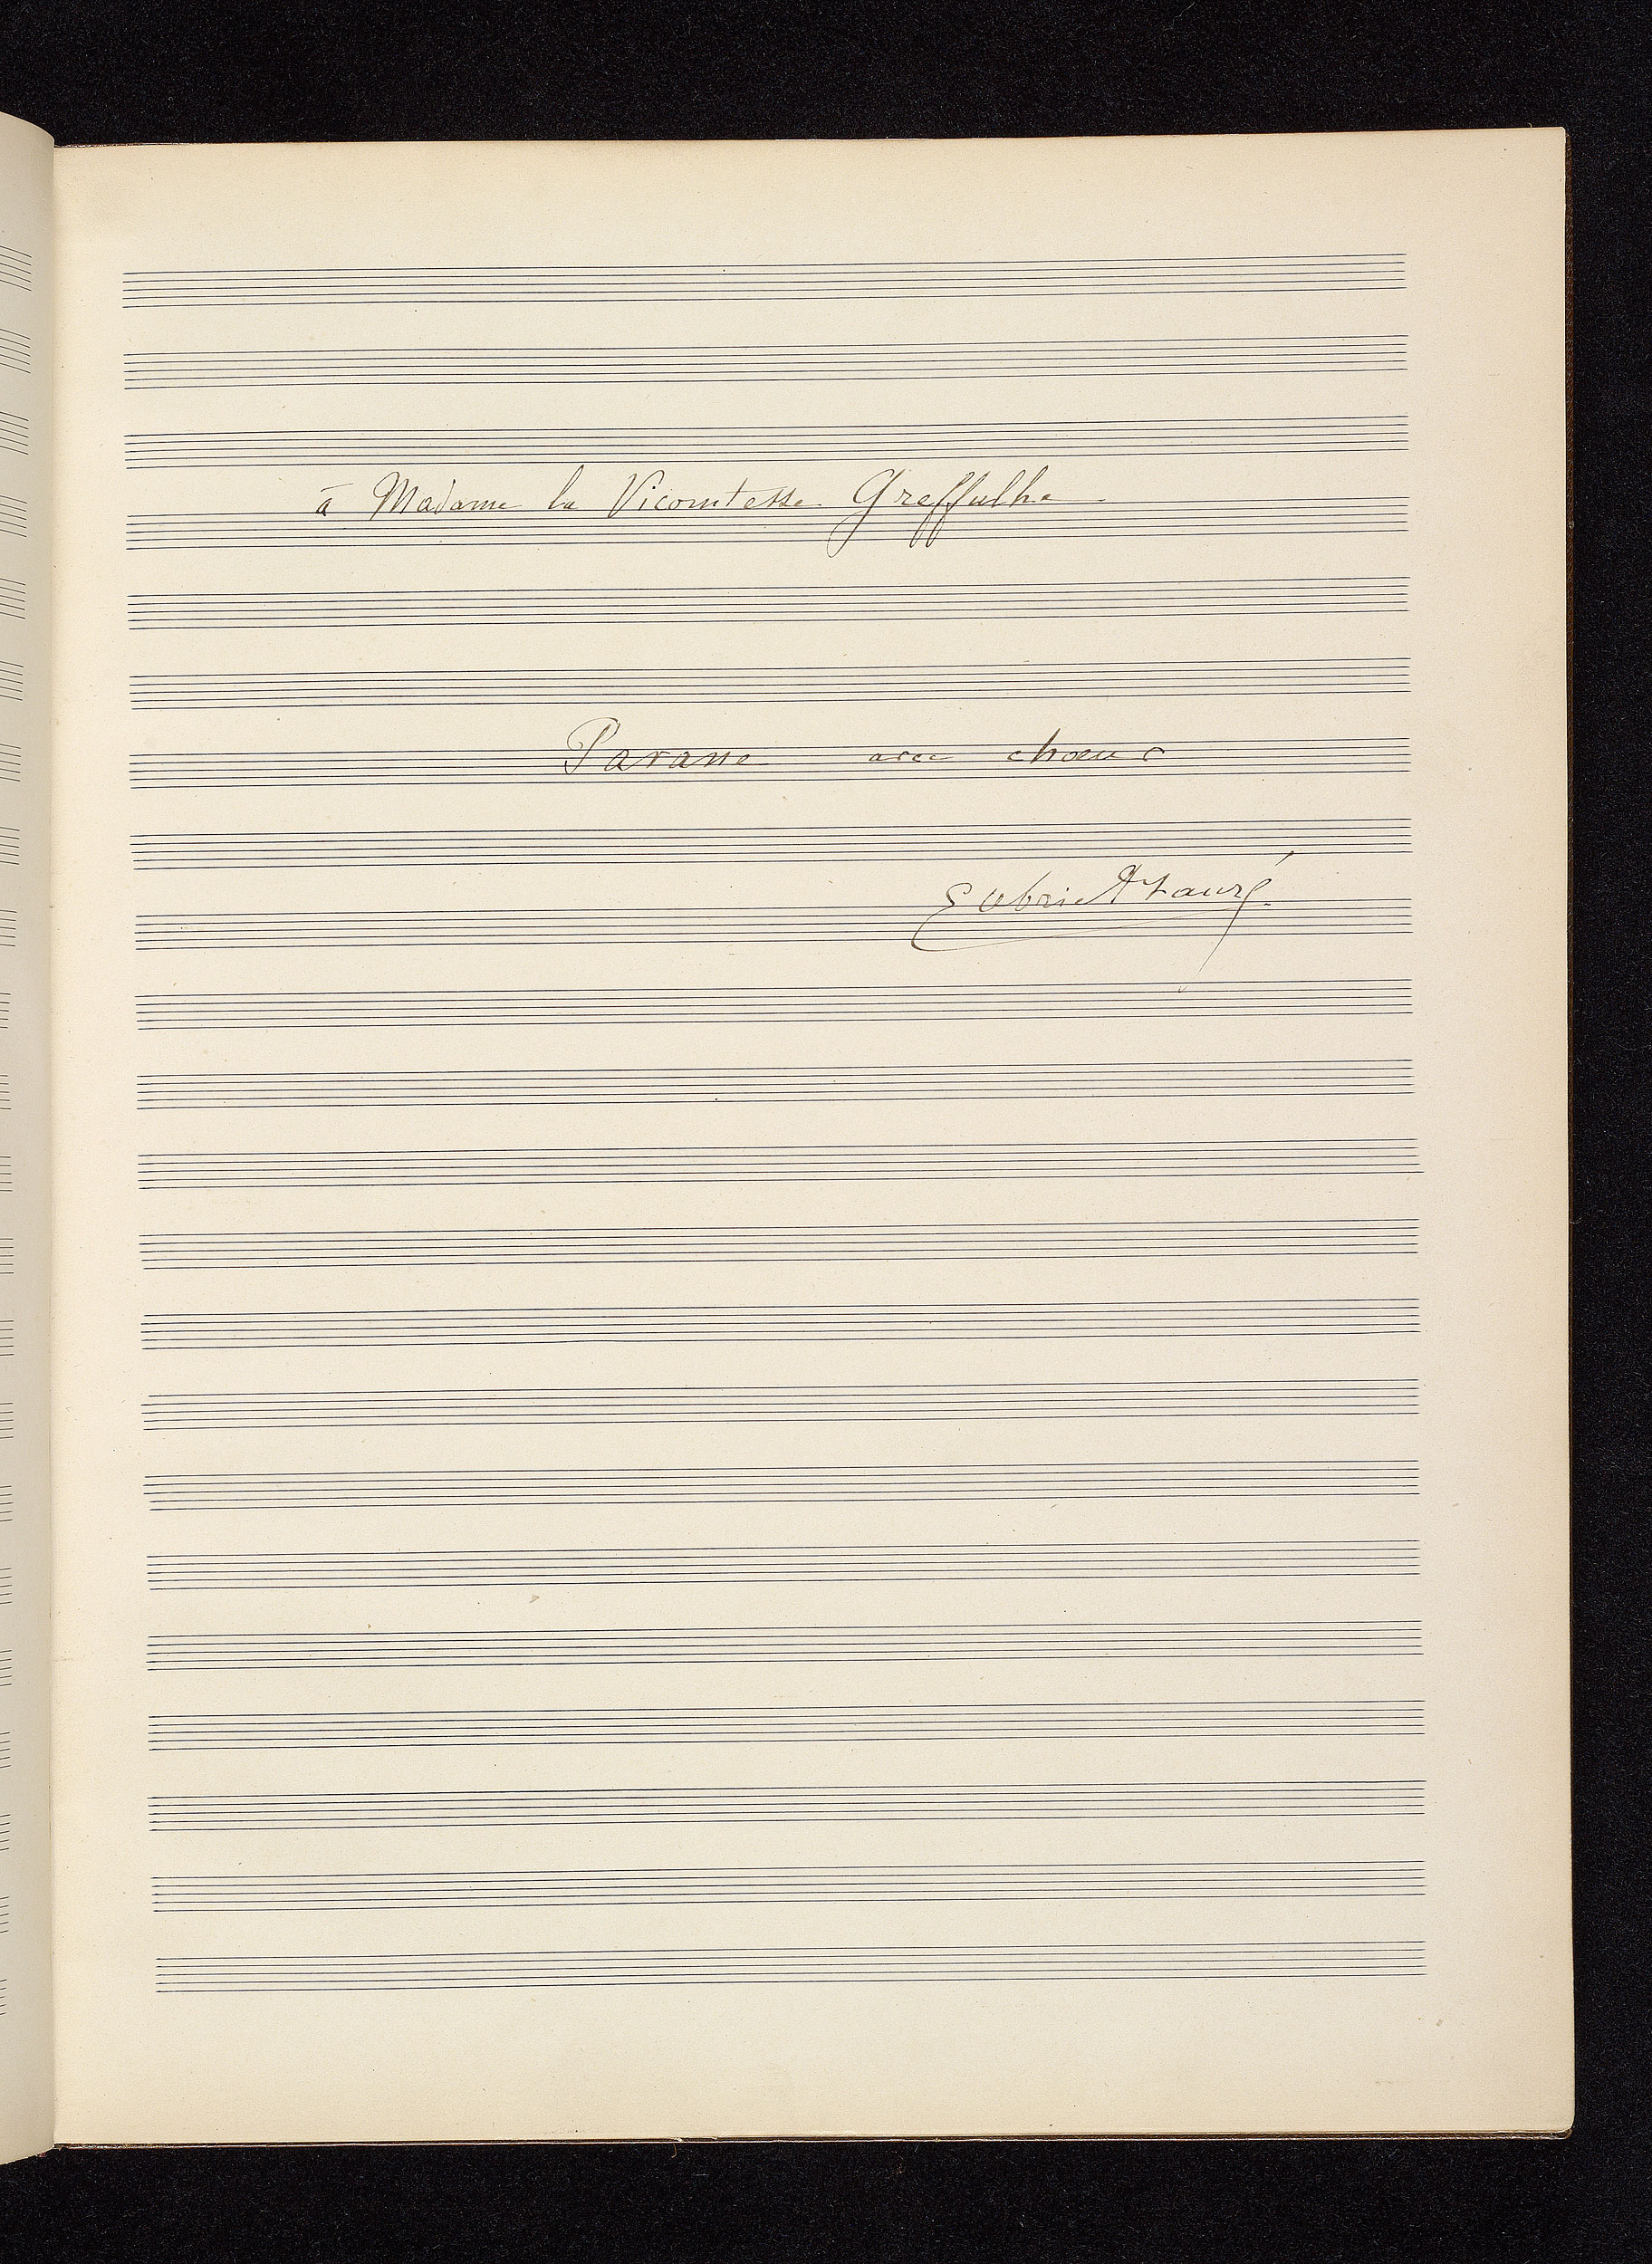 à Madame la Vicomtesse Greffulhe
Pavane avec chœur
Gabriel Fauré